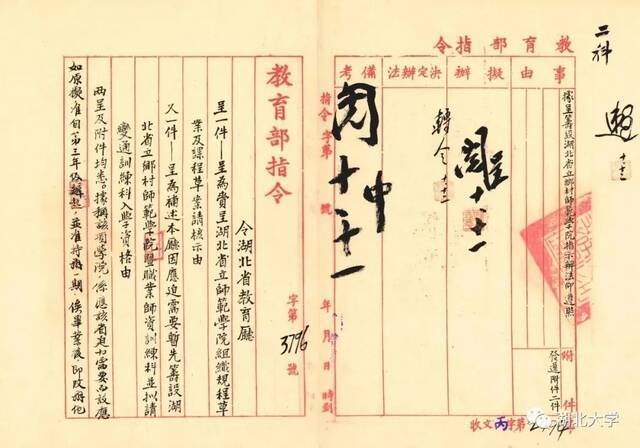 二科
教育部指令
事由
擬辦
決定辦法
備考
據呈籌設湖北省立鄉村師範學院指示辦法仰遵照
附件
發還附件二件
轉令
十、十二
指令 字第 號
年 月 日 時到
收文丙字第
教育部指令
字第3796號
令湖北省教育廳
呈一件——呈為賫呈湖北省立師範學院組織規程草
業及課程草業請核示由
又一件——呈為補述本廳因應迫需要暫先籌設湖
北省立鄉村師範學院暨職業師資訓練科並擬請
變通訓練科入學資格由
兩呈及附件均悉據稱該項學院，係應該省迫切需要而設應
如原擬准自第三年份辦起，並准特辦一期，俟畢業後即改辦他
湖北大学